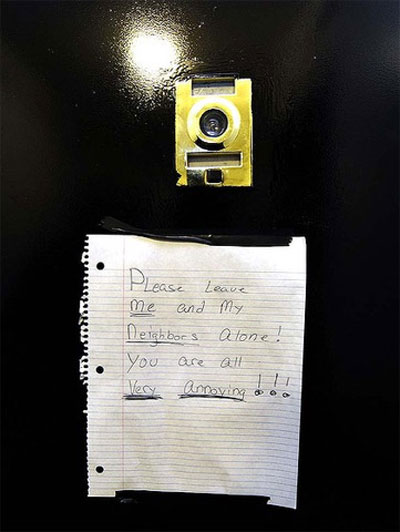 Please Leave
me and my
neighbors alone!
You are all
Very annoying!!!